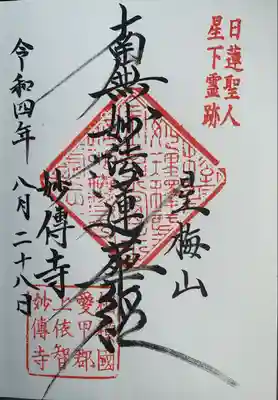 日蓮聖人
星下霊跡
星梅山
南無妙法蓮華経
妙傳寺
令和四年 八月二十八日
愛甲郡
上依智
妙傳寺